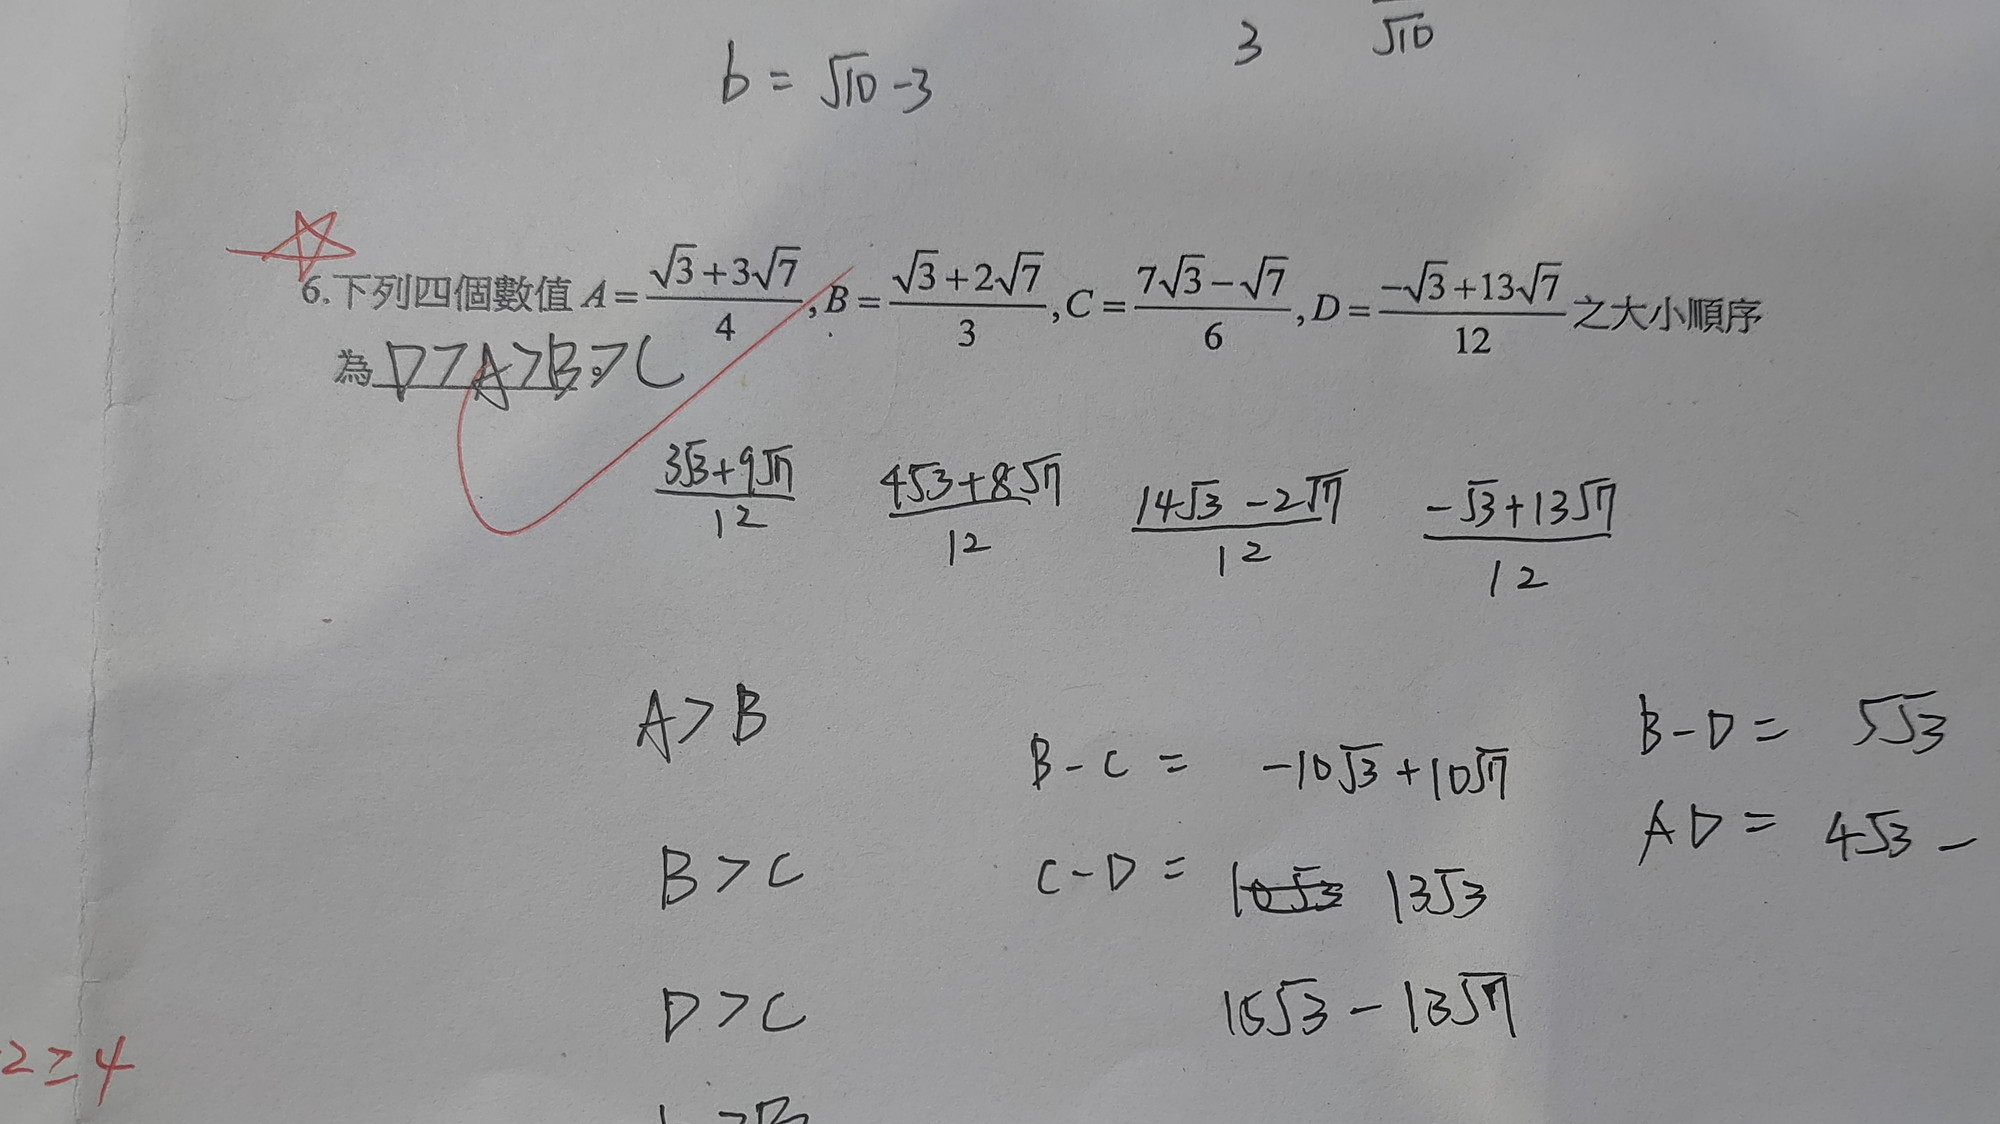 3 √10
b = √10 -3
6.下列四個數值 A = (√3+3√7)/4 , B = (√3+2√7)/3 , C = (7√3-√7)/6 , D = (-√3+13√7)/12 之大小順序
為 D>A>B>C 。
(3√3+9√7)/12 (4√3+8√7)/12 (14√3 -2√7)/12 (-√3+13√7)/12
A>B
B-C = -10√3+10√7
B-D = 5√3
B>C
C-D = 13√3
AD = 4√3 -
D>C
15√3 - 13√7
2≥4